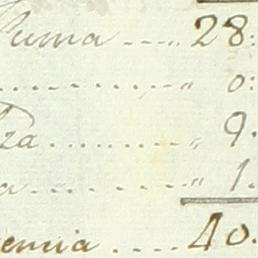 Suma ---- „ 28:
........... „ 0:
za .......... „ 9.
a ......... „ 1.
emia .... 40.